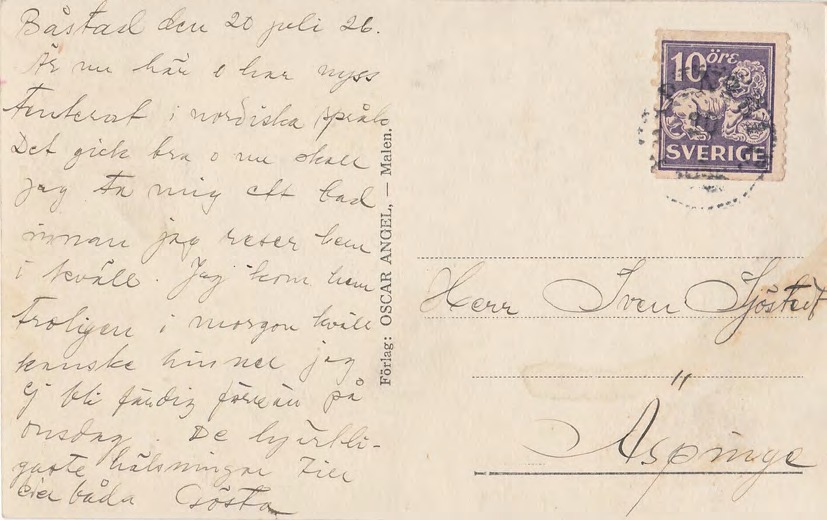 Båstad den 20 juli 26.
Är nu här o har nyss
tenterat i nordiska språk
Det gick bra o nu skall
jag ta mig ett bad
innan jag reser hem
i kväll. Jag kom hem
troligen i morgon kväll
kanske hinner jag
ej bli färdig förrän på
onsdag. De hjärtli-
gaste hälsningar till
eder båda Gösta
Förlag: OSCAR ANGEL, — Malen.
10 öre
SVERIGE
Herr Sven Sjöstedt
Äspinge